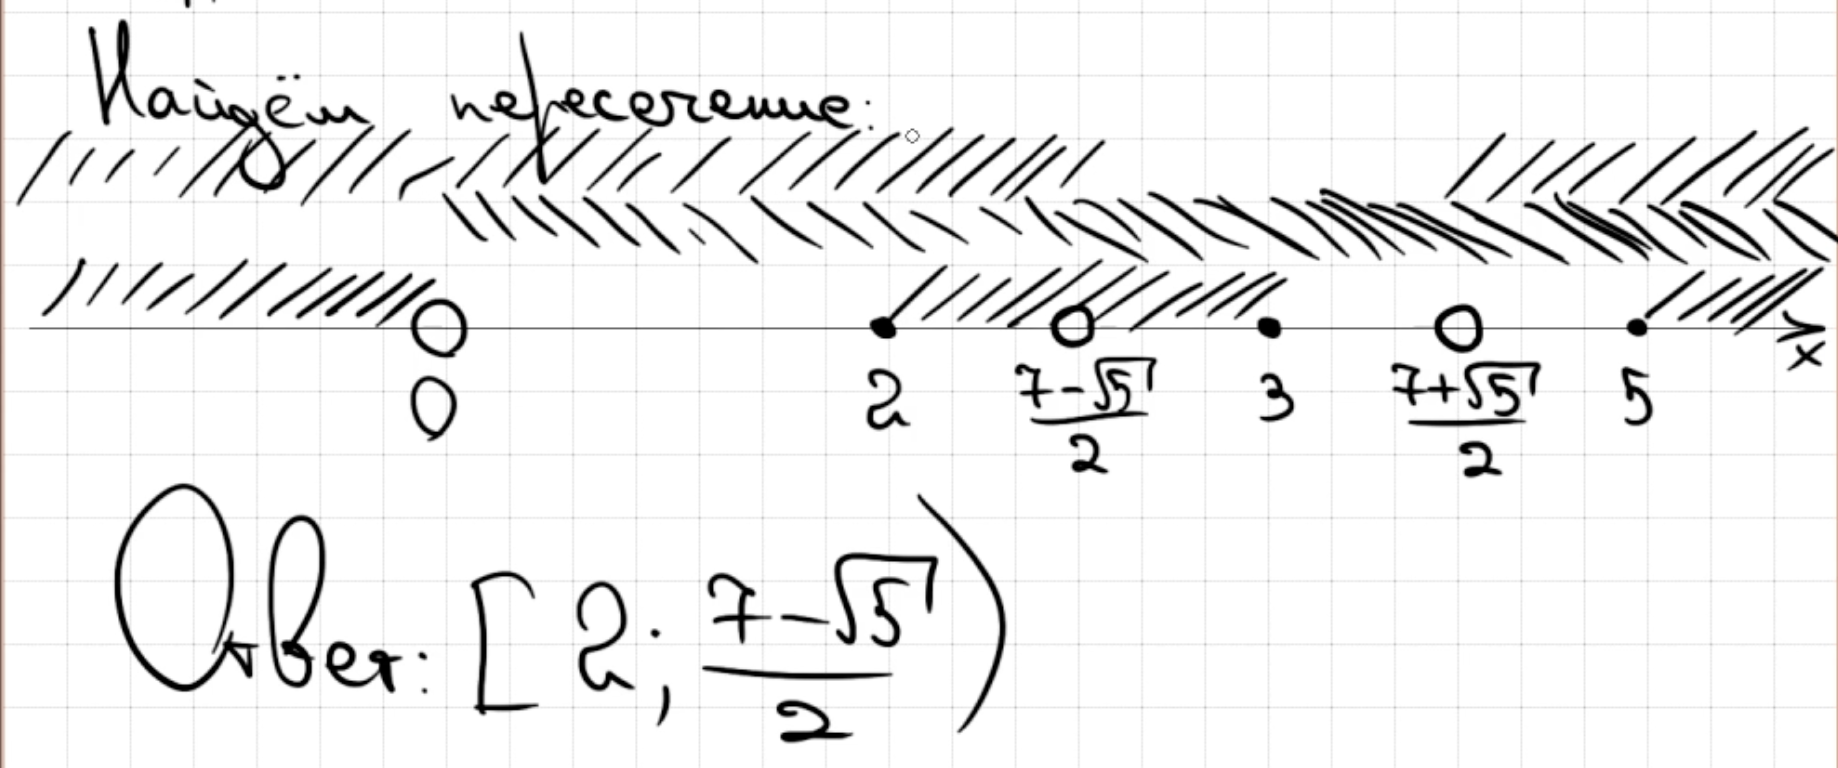 Найдём пересечение:
0 2 7-√5/2 3 7+√5/2 5 x
Ответ: [2; 7-√5/2)